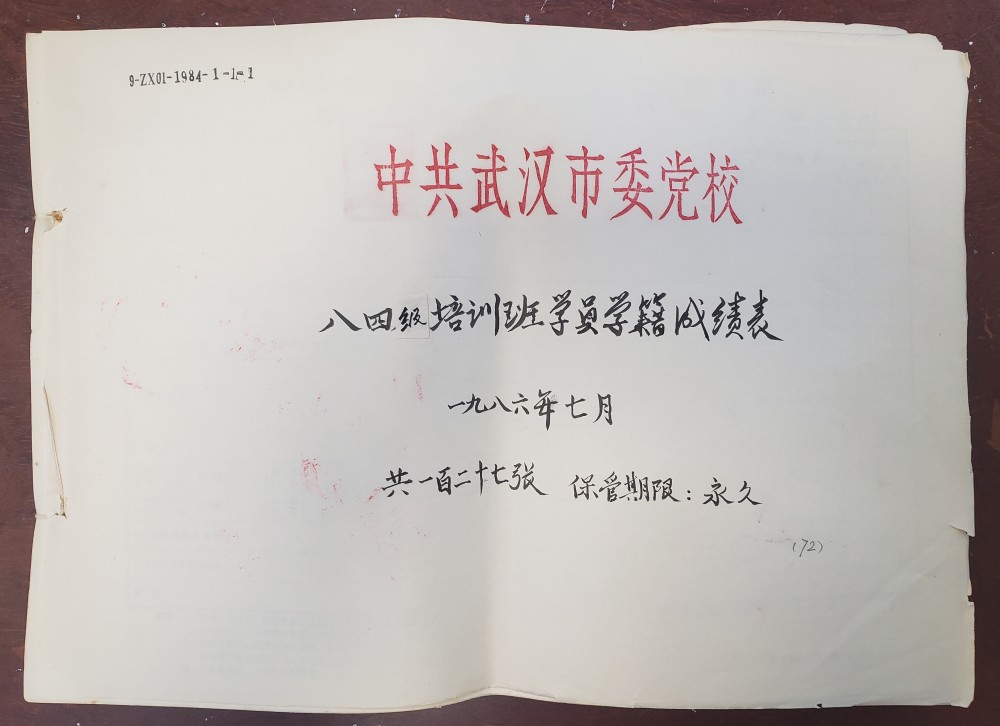 9-ZX01-1984-1-1-1
中共武汉市委党校
八四级培训班学员学籍成绩表
一九八六年七月
共一百二十七张 保管期限：永久
(72)